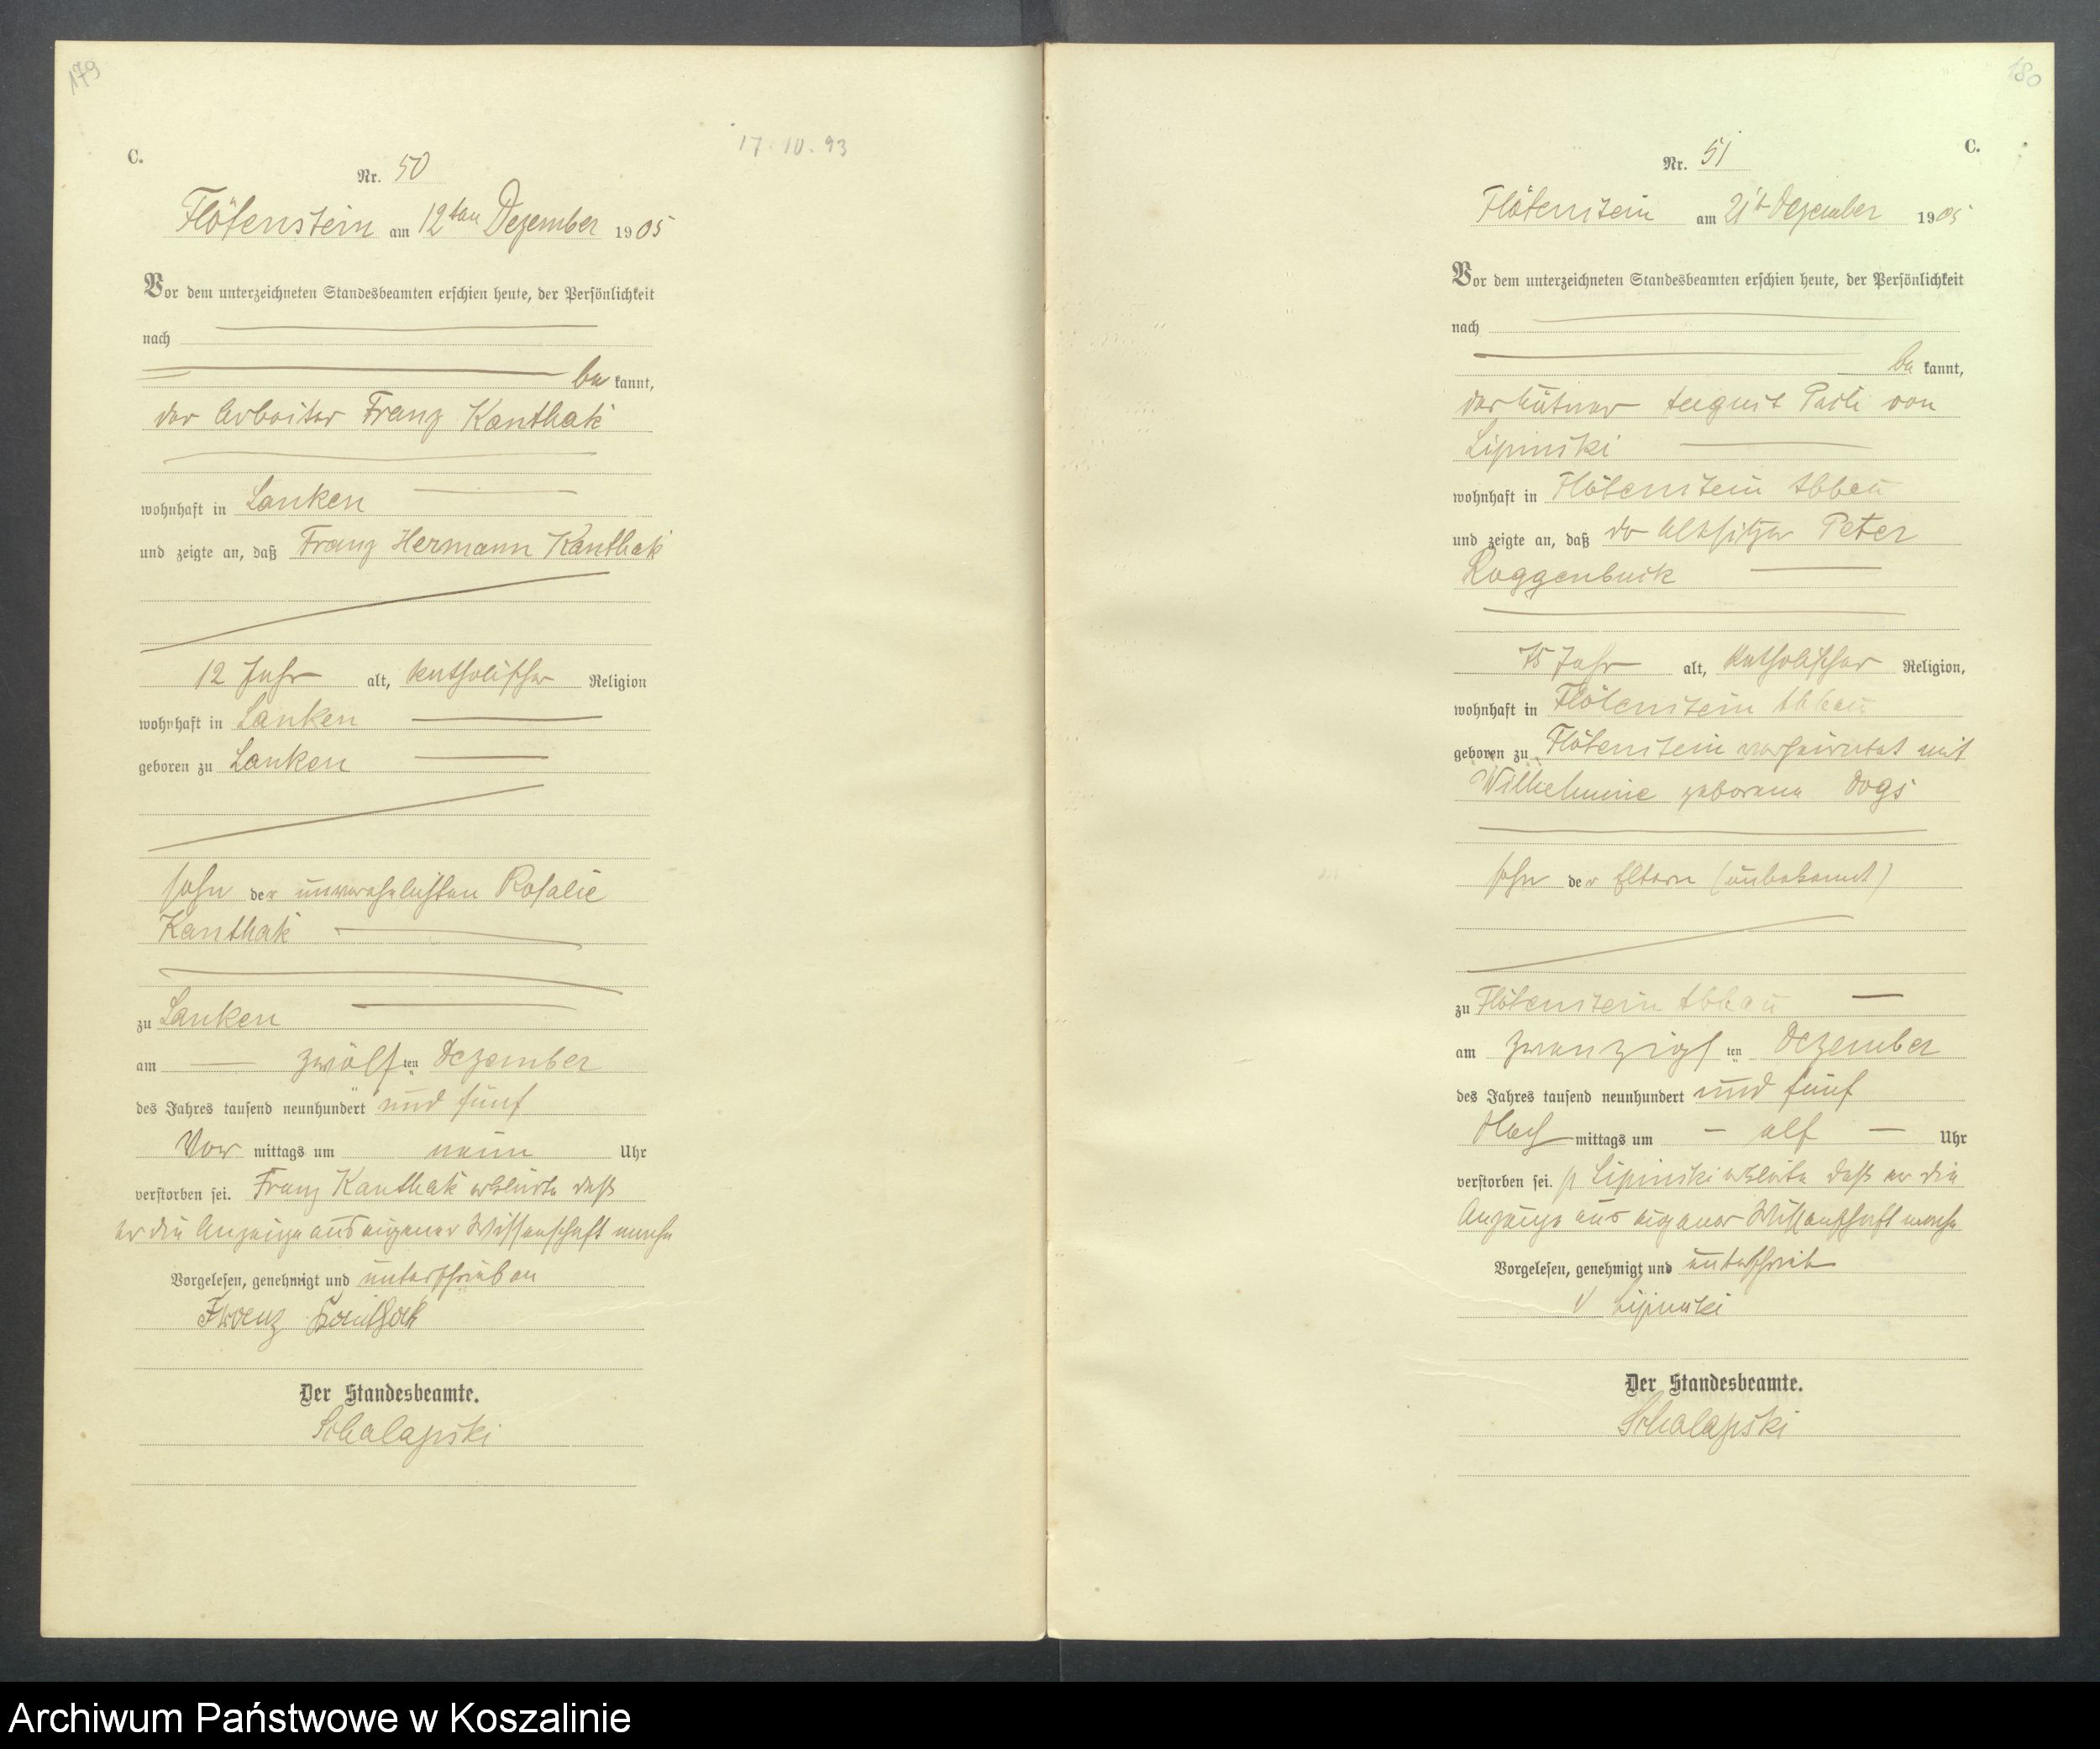 179
C.
17.10.93
Nr. 50
Flötenstein am 12ten Dezember 1905
Vor dem unterzeichneten Standesbeamten erschien heute, der Persönlichkeit
nach
be kannt,
der Arbeiter Franz Kanthak
wohnhaft in Lanken
und zeigte an, daß Franz Hermann Kanthak
12 Jahr alt, katholischer Religion
wohnhaft in Lanken
geboren zu Lanken
Sohn der unverehelichten Rosalie
Kanthak
zu Lanken
am zwölf ten Dezember
des Jahres tausend neunhundert und fünf
Vor mittags um neun Uhr
verstorben sei. Franz Kanthak erklärte daß
er die Anzeige aus eigener Wissenschaft mache
Vorgelesen, genehmigt und unterschrieben
Franz Kanthak
Der Standesbeamte.
Schalapski
180
C.
Nr. 51
Flötenstein am 21t Dezember 1905
Vor dem unterzeichneten Standesbeamten erschien heute, der Persönlichkeit
nach
be kannt,
der August von
Lipinski
wohnhaft in Flötenstein Abbau
und zeigte an, daß der Altsitzer Peter
Roggenbuck
75 Jahr alt, katholischer Religion,
wohnhaft in Flötenstein Abbau
geboren zu Flötenstein verheiratet mit
Wilhelmine geborene Dogs
Sohn der Eltern (unbekannt)
zu Flötenstein Abbau
am zwanzigs ten Dezember
des Jahres tausend neunhundert und fünf
Nach mittags um elf Uhr
verstorben sei. Lipinski erklärte daß er die
Anzeige aus eigener Wissenschaft mache
Vorgelesen, genehmigt und unterschrieb
v Lipinski
Der Standesbeamte.
Schalapski
Archiwum Państwowe w Koszalinie